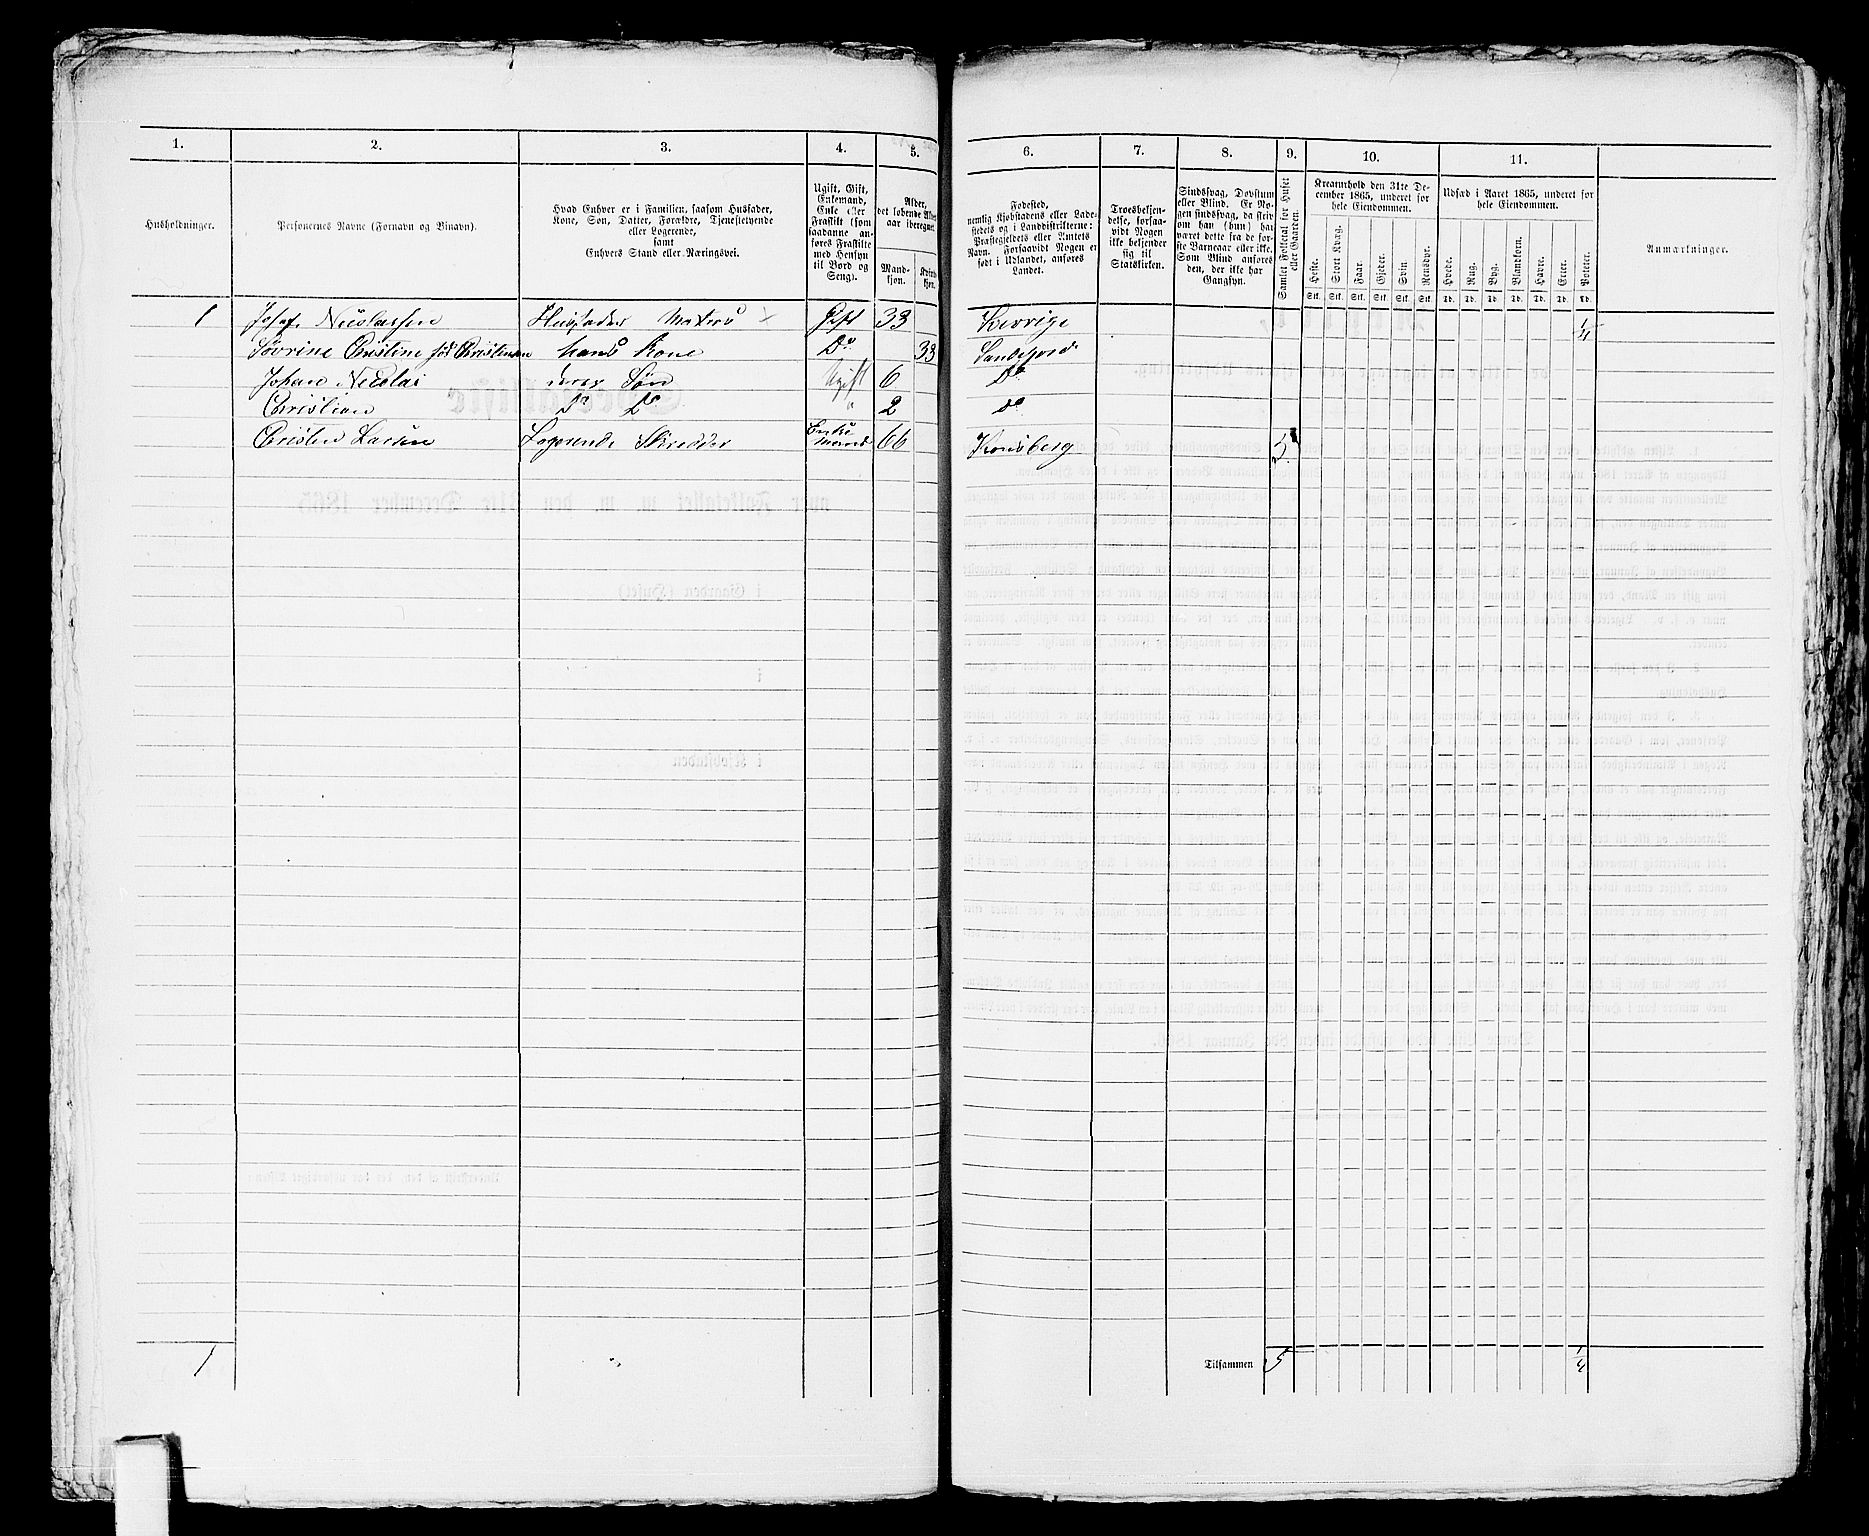 1. 2. 3. 4. 5. 6. 7. 8. 9. 10. 11.
Husholdninger.
Personernes Navne (Fornavn og Binavn).
Hvad Enhver er i Familien, saasom Husfader,
Kone, Søn, Datter, Forældre, Tjenestetyende
eller Logerende,
samt
Enhvers Stand eller Næringsvei.
Ugift, Gift,
Enkemand,
Enke eller
Fraskilt (som
saadanne an-
føres Fraskilte
med Hensyn
til Bord og
Seng).
Alder,
det løbende Alders-
aar iberegnet.
Mand-
kjøn.
Kvinde-
kjøn.
Fødested,
nemlig Kjøbstadens eller Lade-
stedets og i Landdistrikterne:
Præstegjeldets eller Amtets
Navn. Forsaavidt Nogen er
født i Udlandet, anføres
Landet.
Troesbekjen-
delse, forsaa-
vidt Nogen
ikke bekjender
sig til
Statskirken.
Sindssvag, Døvstum
eller Blind. Er No-
gen sindssvag, da skriv
om han (hun) har
været dette fra de før-
ste Barneaar eller ikke.
Som Blind anføres
den, der ikke har
Gangsyn.
Samlet Folketal for Huset
eller Gaarden.
Kreaturhold den 31te De-
cember 1865, underet for
hele Eiendommen.
Heste. Stort Kvæg. Faar. Gjeder. Svin. Rensdyr.
Stk. Stk. Stk. Stk. Stk. Stk.
Udsæd i Aaret 1865, underet for
hele Eiendommen.
Hvede. Rug. Byg. Blandkorn. Havre. Erter. Poteter.
Td. Td. Td. Td. Td. Td. Td.
Anmærkninger.
1 Josef Nicolassen Husfader Matros × Gift 33 1/4
Sovrine Christine født Christensen hans Kone Do 33 Sandefjord
Johan Nicolai deres Søn Ugift 6 Do
Christian Do Do " 2 Do
Christen Larsen Logerende Skredder Enke
mand 66 Konsberg 5
1 Tilsammen 5 1/4